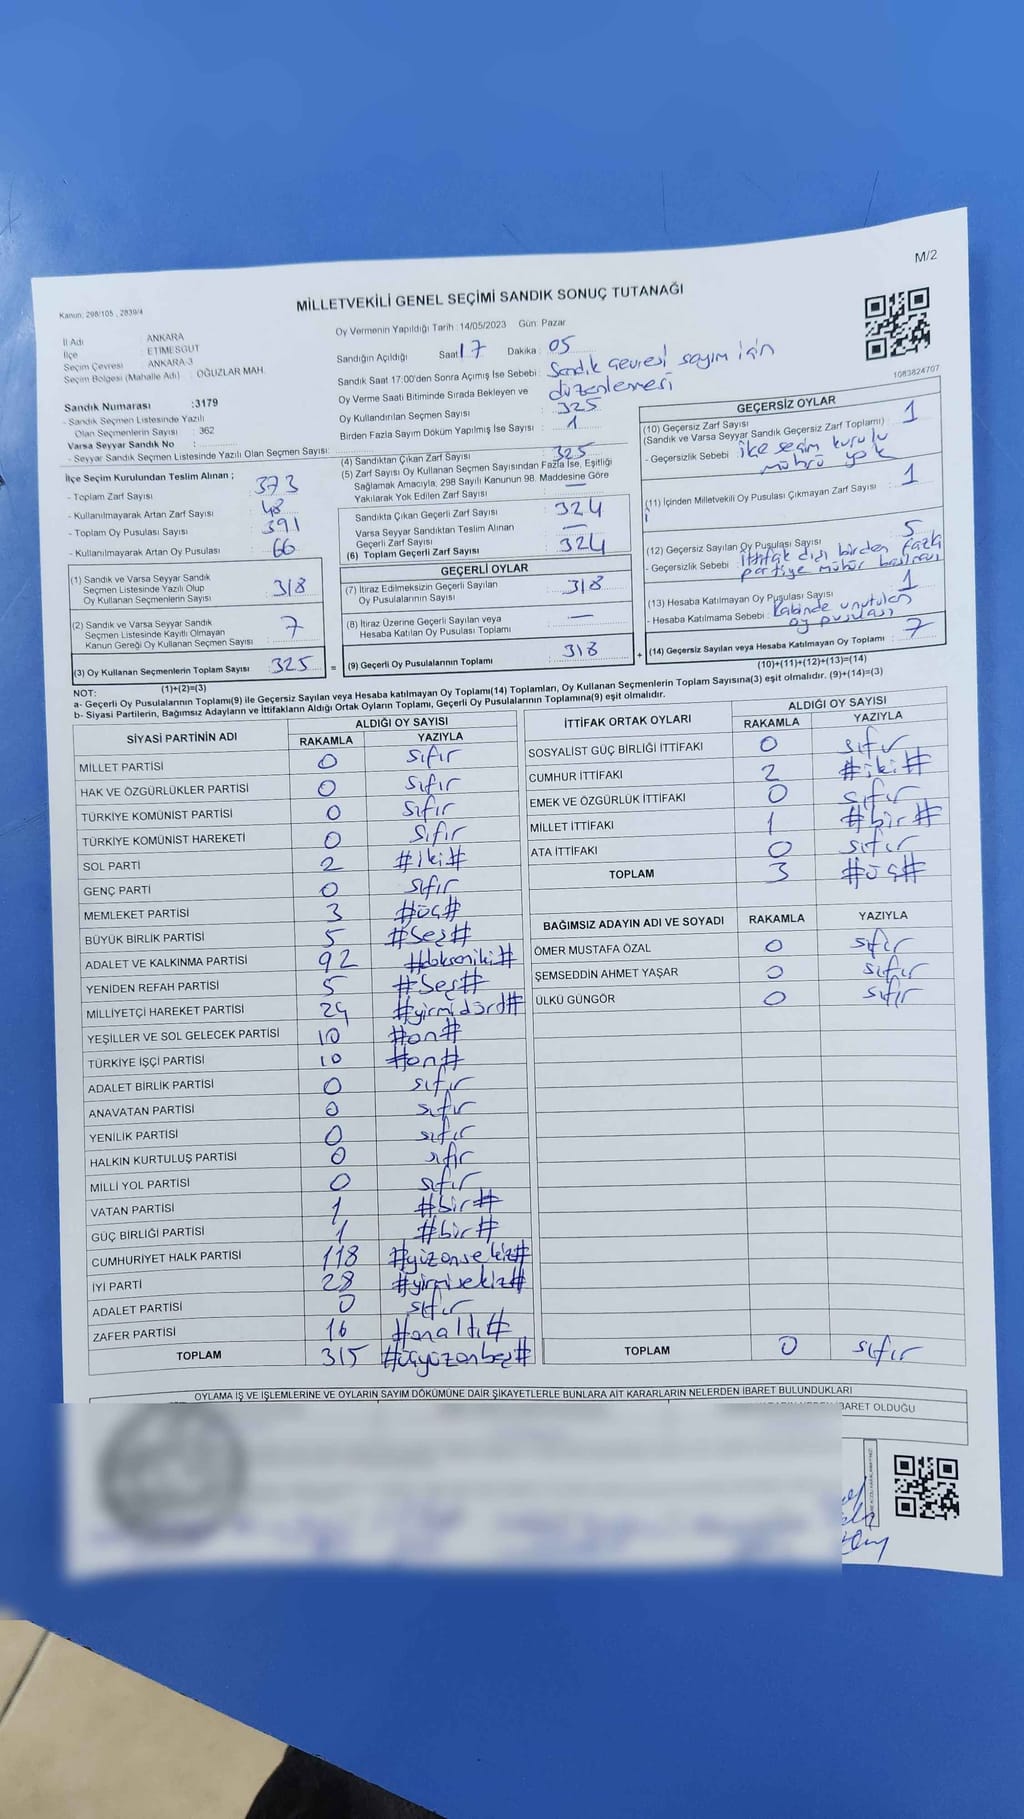 M/2
MİLLETVEKİLİ GENEL SEÇİMİ SANDIK SONUÇ TUTANAĞI
Kanun: 298/105 , 2839/4
İl Adı : ANKARA
İlçe : ETİMESGUT
Seçim Çevresi : ANKARA-3
Seçim Bölgesi (Mahalle Adı) : OĞUZLAR MAH.
Sandık Numarası :3179
- Sandık Seçmen Listesinde Yazılı
Olan Seçmenlerin Sayısı : 362
Varsa Seyyar Sandık No :
- Seyyar Sandık Seçmen Listesinde Yazılı Olan Seçmen Sayısı:
Oy Vermenin Yapıldığı Tarih :14/05/2023 Gün: Pazar
Sandığın Açıldığı Saat 17 Dakika : 05
Sandık Saat 17:00'den Sonra Açımış İse Sebebi : Sandık çevresi sayım için
düzenlemesi
Oy Verme Saati Bitiminde Sırada Bekleyen ve
Oy Kullandırılan Seçmen Sayısı : 325
Birden Fazla Sayım Döküm Yapılmış İse Sayısı : 1
1083824707
İlçe Seçim Kurulundan Teslim Alınan ;
- Toplam Zarf Sayısı : 373
- Kullanılmayarak Artan Zarf Sayısı : 48
- Toplam Oy Pusulası Sayısı : 391
- Kullanılmayarak Artan Oy Pusulası : 66
(1) Sandık ve Varsa Seyyar Sandık
Seçmen Listesinde Yazılı Olup
Oy Kullanan Seçmenlerin Sayısı : 318
(2) Sandık ve Varsa Seyyar Sandık
Seçmen Listesinde Kayıtlı Olmayan
Kanun Gereği Oy Kullanan Seçmen Sayısı : 7
(3) Oy Kullanan Seçmenlerin Toplam Sayısı : 325 =
(1)+(2)=(3)
(4) Sandıktan Çıkan Zarf Sayısı : 325
(5) Zarf Sayısı Oy Kullanan Seçmen Sayısından Fazla İse, Eşitliği
Sağlamak Amacıyla, 298 Sayılı Kanunun 98. Maddesine Göre
Yakılarak Yok Edilen Zarf Sayısı : —
Sandıkta Çıkan Geçerli Zarf Sayısı : 324
Varsa Seyyar Sandıktan Teslim Alınan
Geçerli Zarf Sayısı : —
(6) Toplam Geçerli Zarf Sayısı : 324
GEÇERLİ OYLAR
(7) İtiraz Edilmeksizin Geçerli Sayılan
Oy Pusulalarının Sayısı : 318
(8) İtiraz Üzerine Geçerli Sayılan veya
Hesaba Katılan Oy Pusulası Toplamı : —
(9) Geçerli Oy Pusulalarının Toplamı : 318 +
GEÇERSİZ OYLAR
(10) Geçersiz Zarf Sayısı : 1
(Sandık ve Varsa Seyyar Sandık Geçersiz Zarf Toplamı)
- Geçersizlik Sebebi : ilçe seçim kurulu
mührü yok
(11) İçinden Milletvekili Oy Pusulası Çıkmayan Zarf Sayısı : 1
(12) Geçersiz Sayılan Oy Pusulası Sayısı : 5
- Geçersizlik Sebebi : ittifak dışı birden fazla
partiye mühür basılması
(13) Hesaba Katılmayan Oy Pusulası Sayısı : 1
- Hesaba Katılmama Sebebi : Kabinde unutulan
oy pusulası
(14) Geçersiz Sayılan veya Hesaba Katılmayan Oy Toplamı : 7
(10)+(11)+(12)+(13)=(14)
NOT:
a- Geçerli Oy Pusulalarının Toplamı(9) ile Geçersiz Sayılan veya Hesaba katılmayan Oy Toplamı(14) Toplamları, Oy Kullanan Seçmenlerin Toplam Sayısına(3) eşit olmalıdır. (9)+(14)=(3)
b- Siyasi Partilerin, Bağımsız Adayların ve İttifakların Aldığı Ortak Oyların Toplamı, Geçerli Oy Pusulalarının Toplamına(9) eşit olmalıdır.
SİYASİ PARTİNİN ADI ALDIĞI OY SAYISI
RAKAMLA YAZIYLA
MİLLET PARTİSİ 0 sıfır
HAK VE ÖZGÜRLÜKLER PARTİSİ 0 sıfır
TÜRKİYE KOMÜNİST PARTİSİ 0 sıfır
TÜRKİYE KOMÜNİST HAREKETİ 0 sıfır
SOL PARTİ 2 #iki#
GENÇ PARTİ 0 sıfır
MEMLEKET PARTİSİ 3 #üç#
BÜYÜK BİRLİK PARTİSİ 5 #beş#
ADALET VE KALKINMA PARTİSİ 92 #doksaniki#
YENİDEN REFAH PARTİSİ 5 #beş#
MİLLİYETÇİ HAREKET PARTİSİ 24 #yirmidört#
YEŞİLLER VE SOL GELECEK PARTİSİ 10 #on#
TÜRKİYE İŞÇİ PARTİSİ 10 #on#
ADALET BİRLİK PARTİSİ 0 sıfır
ANAVATAN PARTİSİ 0 sıfır
YENİLİK PARTİSİ 0 sıfır
HALKIN KURTULUŞ PARTİSİ 0 sıfır
MİLLİ YOL PARTİSİ 0 sıfır
VATAN PARTİSİ 1 #bir#
GÜÇ BİRLİĞİ PARTİSİ 1 #bir#
CUMHURİYET HALK PARTİSİ 118 #yüzonsekiz#
İYİ PARTİ 28 #yirmisekiz#
ADALET PARTİSİ 0 sıfır
ZAFER PARTİSİ 16 #onaltı#
TOPLAM 315 #üçyüzonbeş#
İTTİFAK ORTAK OYLARI ALDIĞI OY SAYISI
RAKAMLA YAZIYLA
SOSYALİST GÜÇ BİRLİĞİ İTTİFAKI 0 sıfır
CUMHUR İTTİFAKI 2 #iki#
EMEK VE ÖZGÜRLÜK İTTİFAKI 0 sıfır
MİLLET İTTİFAKI 1 #bir#
ATA İTTİFAKI 0 sıfır
TOPLAM 3 #üç#
BAĞIMSIZ ADAYIN ADI VE SOYADI RAKAMLA YAZIYLA
ÖMER MUSTAFA ÖZAL 0 sıfır
ŞEMSEDDİN AHMET YAŞAR 0 sıfır
ÜLKÜ GÜNGÖR 0 sıfır
TOPLAM 0 sıfır
OYLAMA İŞ VE İŞLEMLERİNE VE OYLARIN SAYIM DÖKÜMÜNE DAİR ŞİKAYETLERLE BUNLARA AİT KARARLARIN NELERDEN İBARET BULUNDUKLARI
İBARET OLDUĞU